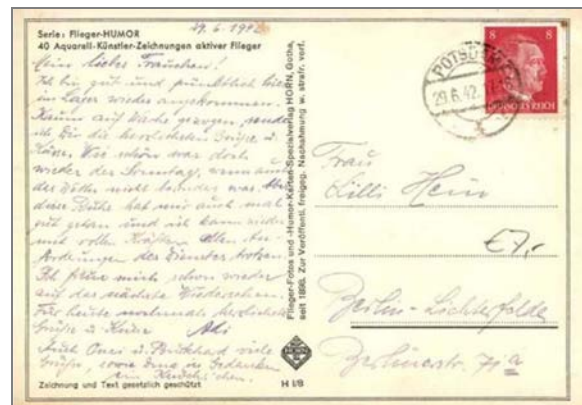 29.6.1942
Serie: Flieger-HUMOR
40 Aquarell-Künstler-Zeichnungen aktiver Flieger
Mein liebes Frauchen!
Ich bin gut und pünktlich hier
im Lager wieder angekommen.
Kaum auf Wache gezogen, sende
ich Dir die herzlichsten Grüße u.
Küsse. Wie schön war doch
wieder der Sonntag, wenn auch
das Wetter nicht besonders war. Aber
diese Ruhe hat mir auch mal
gut getan und ich kann wieder
mit vollen Kräften allen An-
forderungen des Dienstes trotzen.
Ich freue mich schon wieder
auf das nächste Wiedersehen.
Für heute nochmals herzlichste
Grüße u. Küsse
Auch u. viele
Grüße, sowie
Zeichnung und Text gesetzlich geschützt
H I/8
Flieger-Fotos und -Humor-Karten-Spezialverlag HORN, Gotha,
seit 1898. Zur Veröffentl. freigeg. Nachahmung w. strafr. verf.
HORN
POTSDAM
29.6.42
8 8
DEUTSCHES REICH
Frau
Lilli Hein
€7,-
Berlin-Lichterfelde
Berlinerstr. 71a